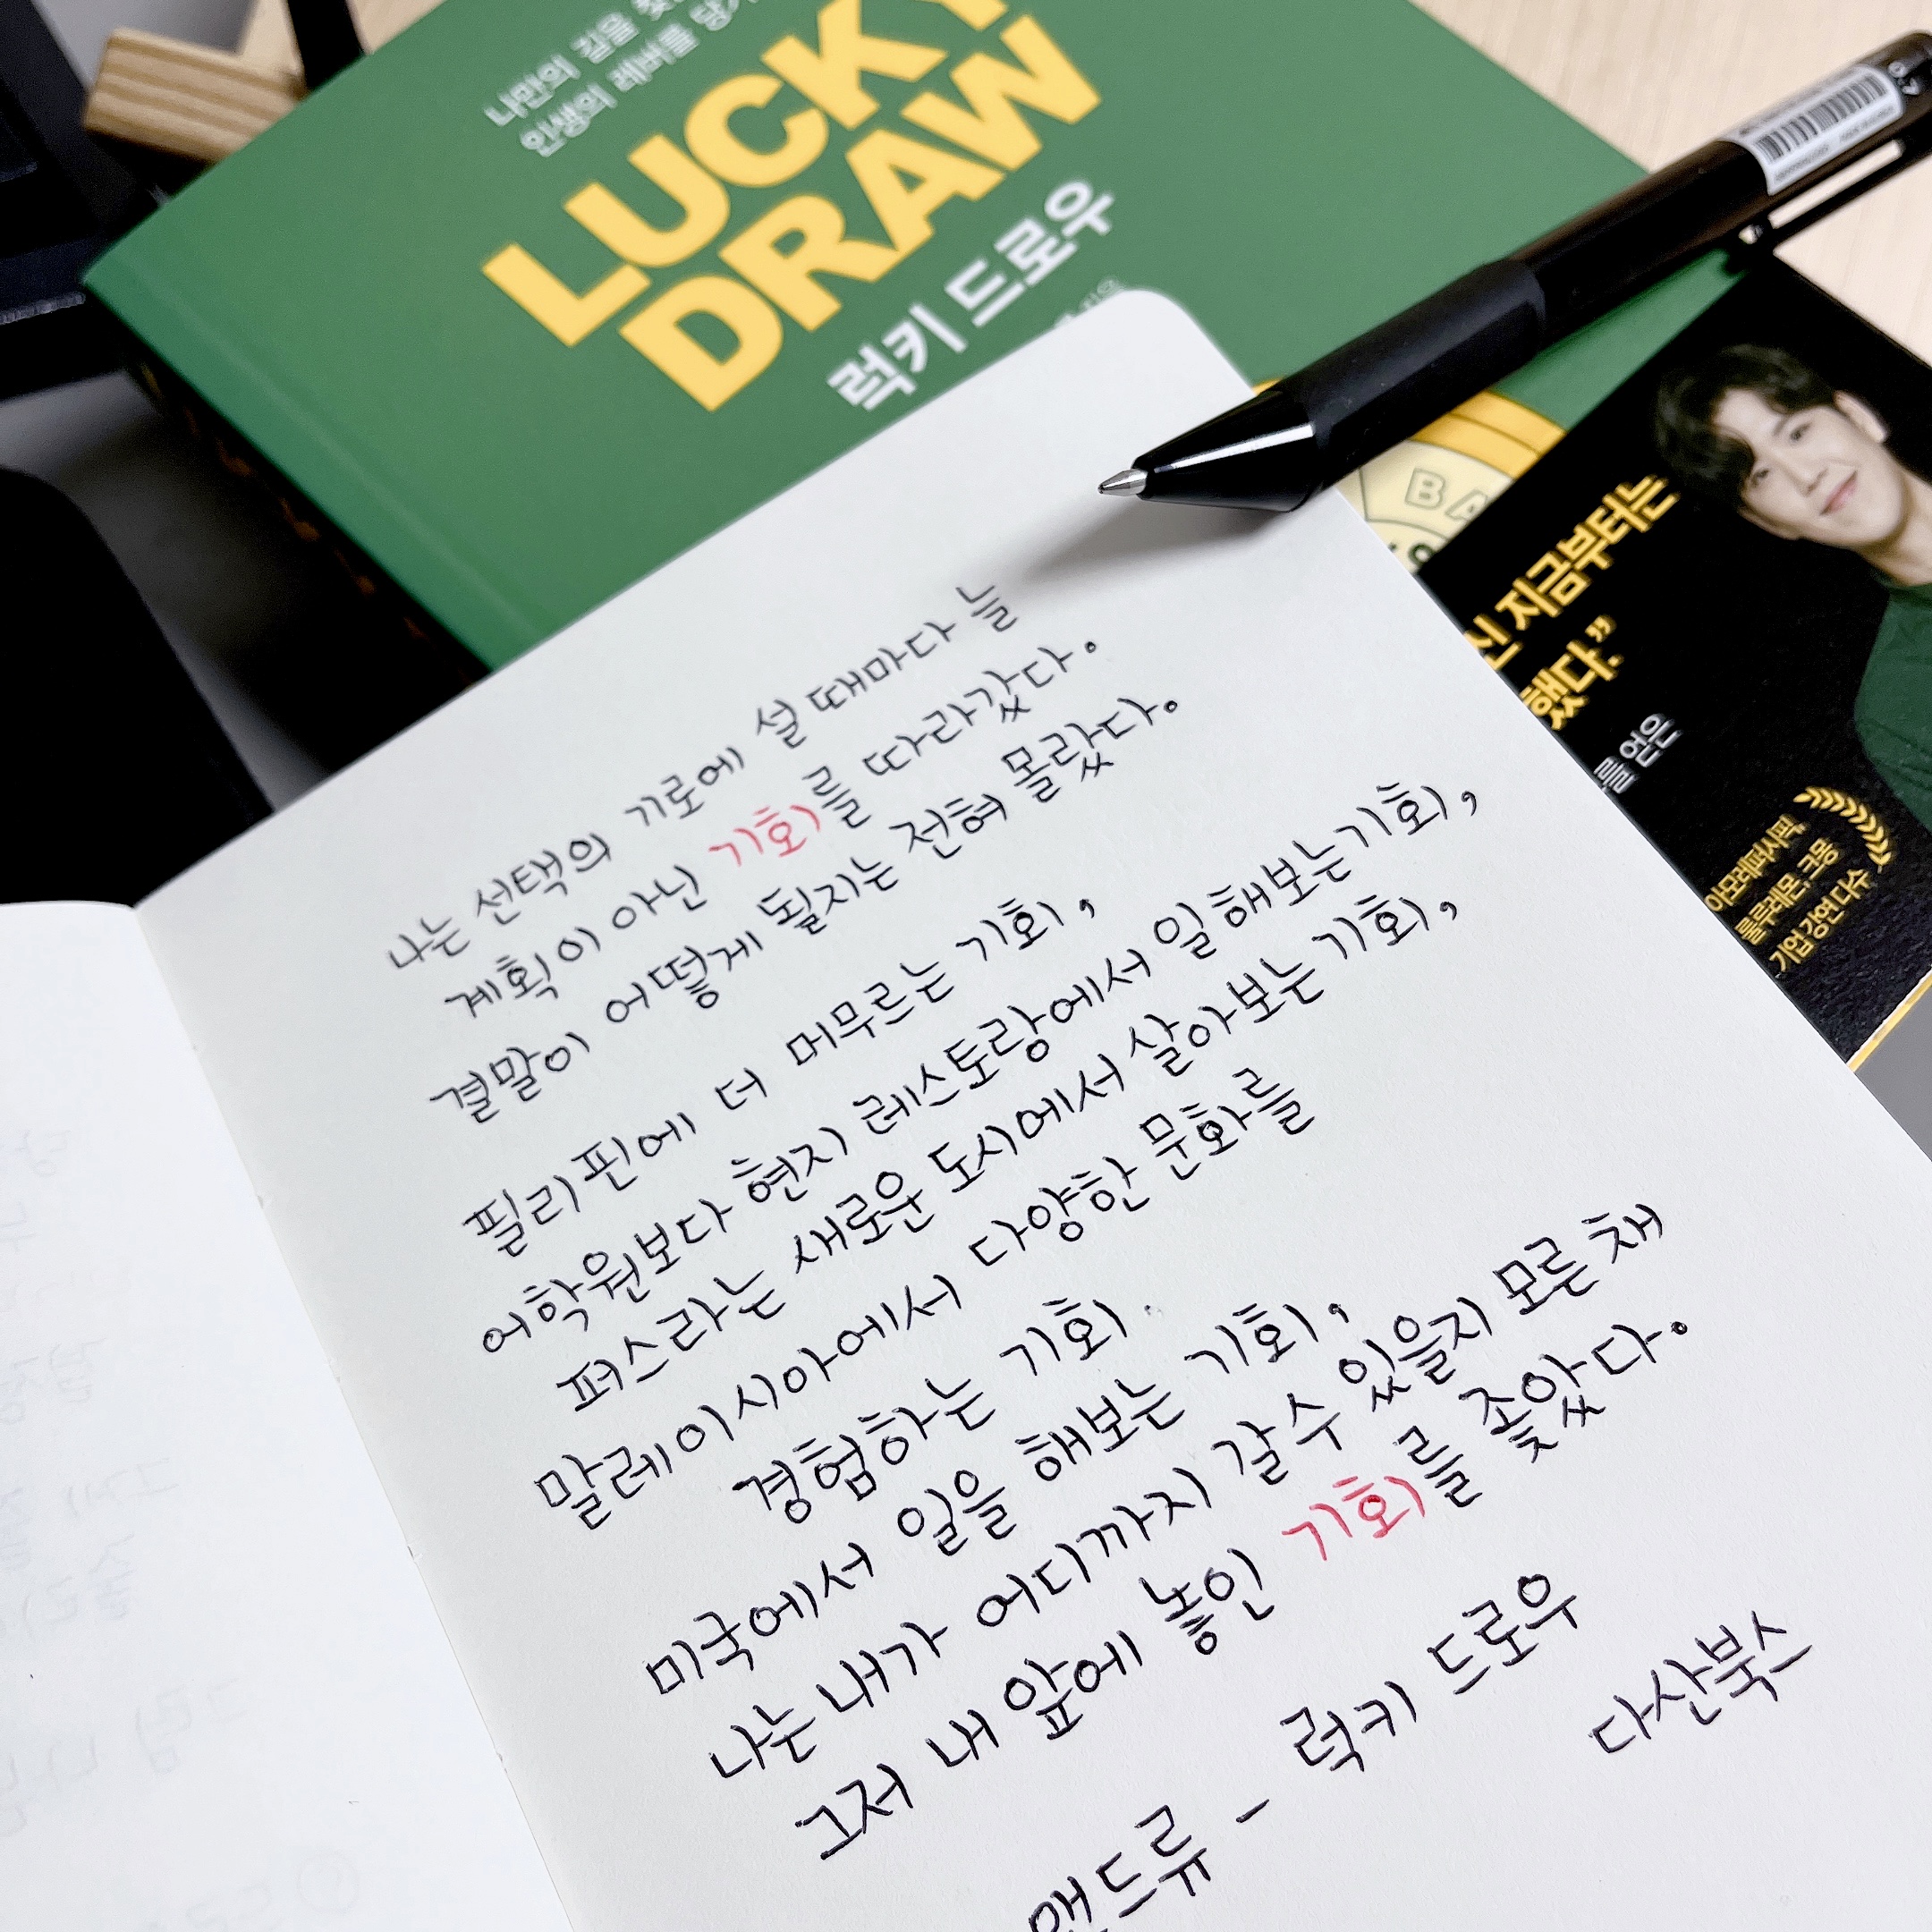 나만의 길을
인생의 레버를
LUCKY
DRAW
럭키 드로우
지음
BA
신 지금부터는
했다."
를 얻은
아모레퍼시픽,
룰루레몬, 크몽
기업 강연 다수
나는 선택의 기로에 설 때마다 늘
계획이 아닌 기회를 따라갔다.
결말이 어떻게 될지는 전혀 몰랐다.
필리핀에 더 머무르는 기회,
어학원보다 현지 레스토랑에서 일해보는 기회,
퍼스라는 새로운 도시에서 살아보는 기회,
말레이시아에서 다양한 문화를
경험하는 기회.
미국에서 일을 해보는 기회,
나는 내가 어디까지 갈 수 있을지 모른 채
그저 내 앞에 놓인 기회를 좇았다.
앤드류 - 럭키 드로우
다산북스